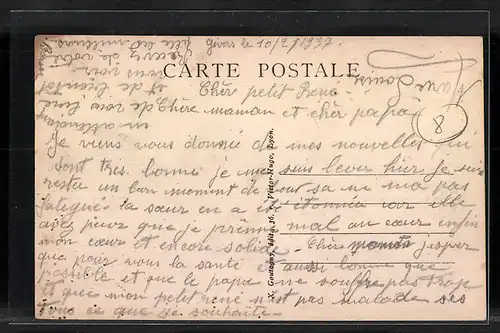 Givors le 10/2/1937.
CARTE POSTALE
Chère petit René
Chère maman et cher papa
Je viens vous donné de mes nouvelles qui
sont tres bonne je me suis lever hier je suis
resta un bon moment de bout sa ne ma pas
fatigué la sœur en a été étonnée car elle
avez peur que je prenne mal au cœur enfin
mon cœur et encore solide. Chère maman j'esper
que pour vous la santé et aussi bonne que
possible et que le papa ne souffre pas trop
et que mon petit rené n'est pas malade ses
tous ce que je souhaite.
X. Goutagny, édit., 36, r. Victor-Hugo, Lyon.
en attendant
de vous lire
et de bientot
vous voir
recevez de votre
fille les meilleurs
Marie Louise
8